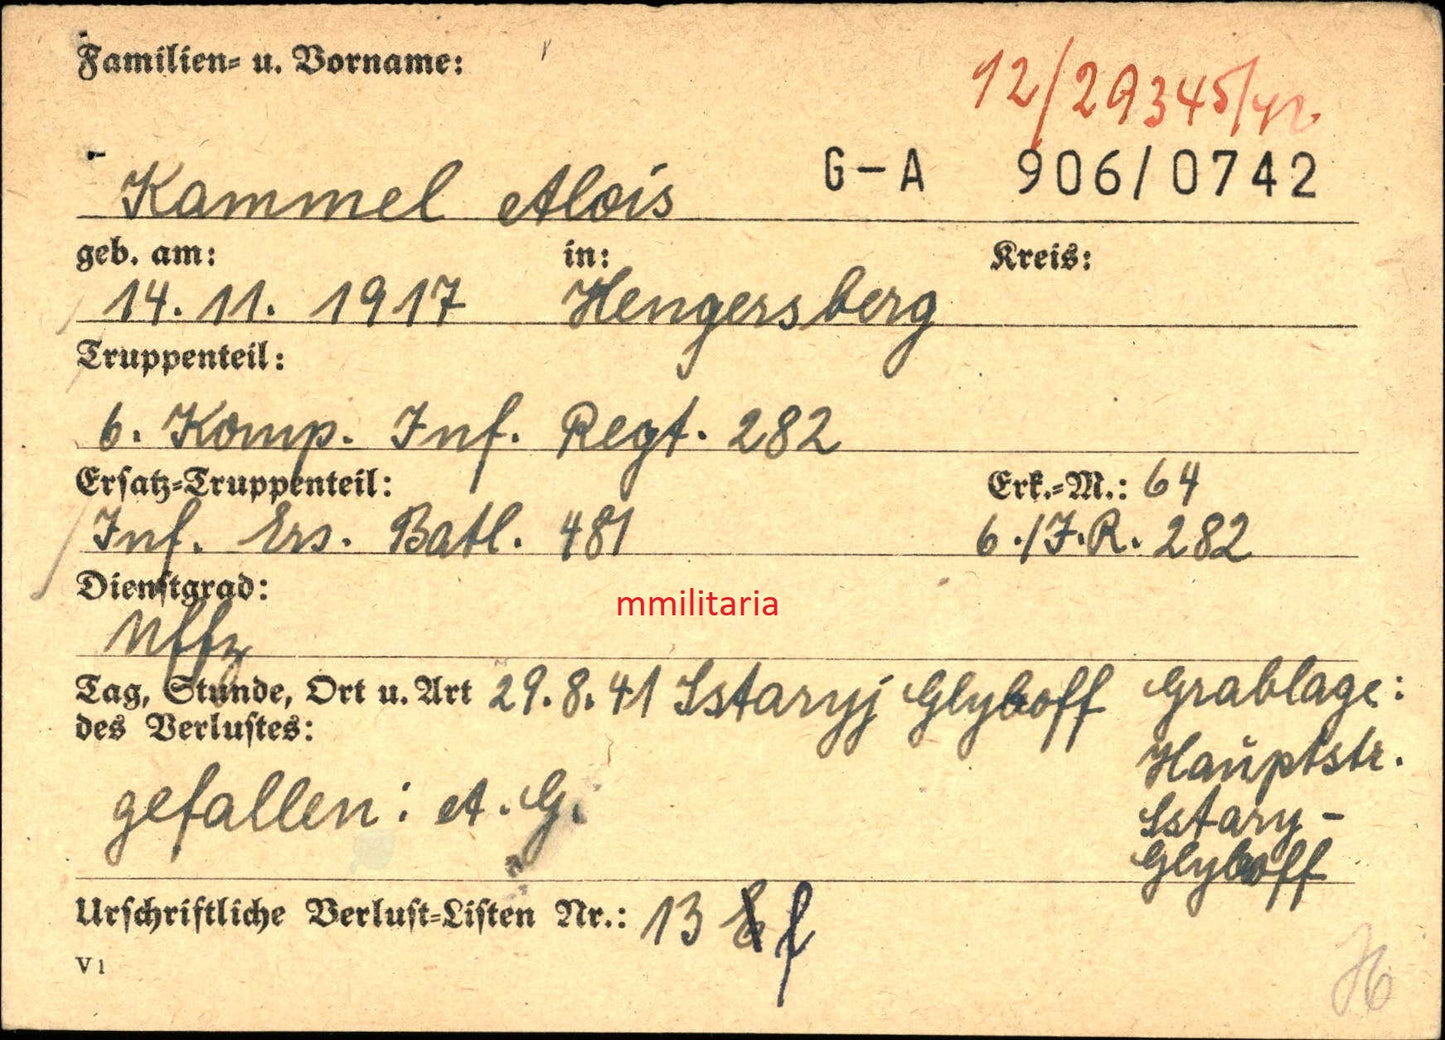 Familien- u. Vorname:
12/29345/
Kammel Alois G-A 906/0742
geb. am: in: Kreis:
14. 11. 1917 Hengersberg
Truppenteil:
6. Komp. Inf. Regt. 282
Ersatz-Truppenteil: Erk.-M.: 64
Inf. Ers. Batl. 481 6./I.R. 282
Dienstgrad:
Uffz
mmilitaria
Tag, Stunde, Ort u. Art 29.8.41 Sstaryj Glyboff Grablage:
des Verlustes:
Hauptstr.
gefallen: A. G. Sstary-
Glyboff
Urschriftliche Verlust-Listen Nr.: 13 f
V 1